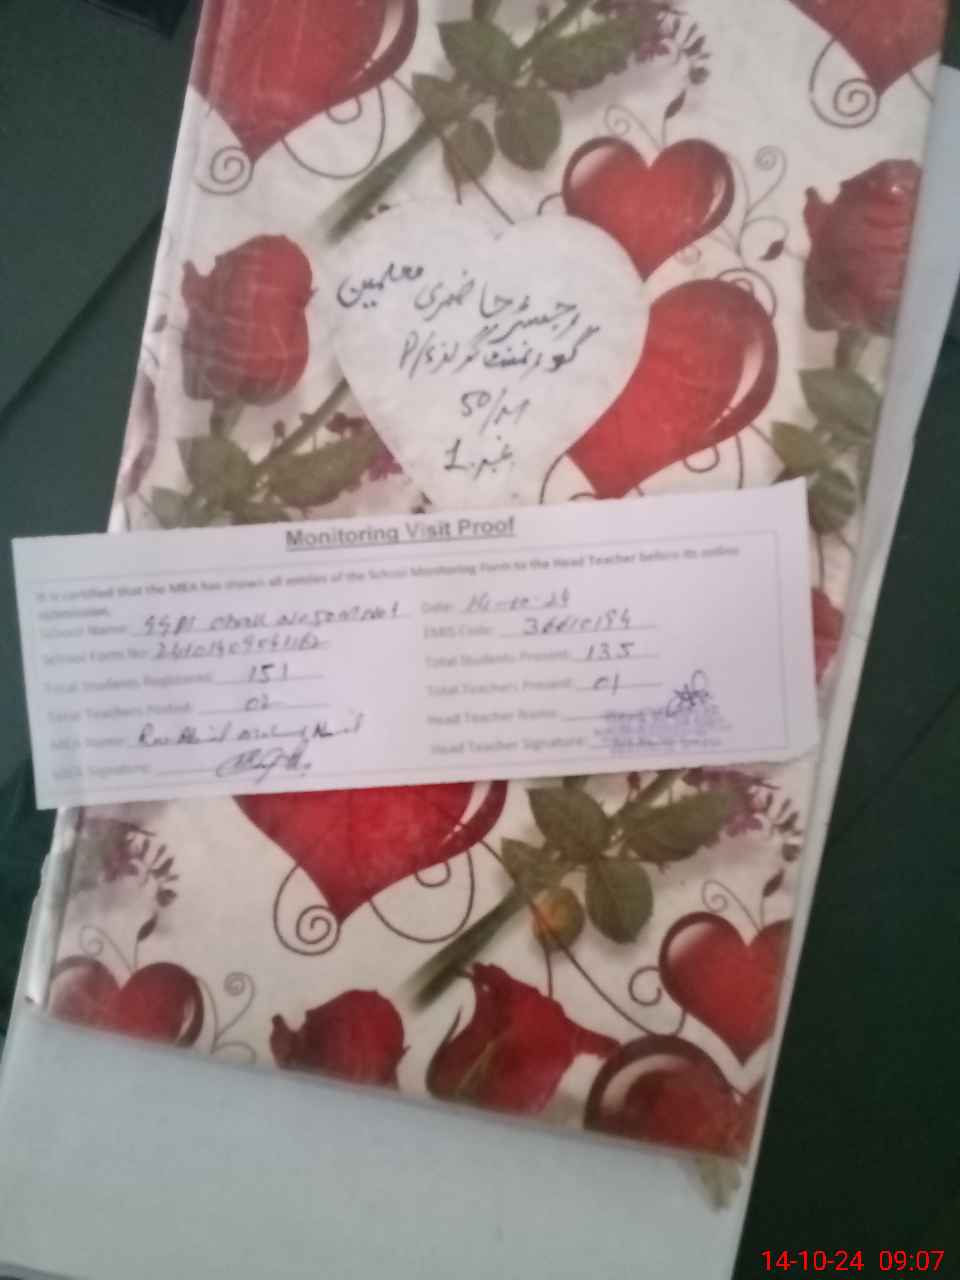 رجسٹر حاضری معلمین
گورنمنٹ گرلز P/S
50/
نمبر 1
Monitoring Visit Proof
It is certified that the MEA has shown all entries of the School Monitoring Form to the Head Teacher before its online
submission.
School Name: Chak No 50 No 1 Date: 14-10-24
School Form No: EMIS Code: 36610194
Total Students Registered: 151 Total Students Present: 135
Total Teachers Posted: 02 Total Teachers Present: 01
MEA Name: Head Teacher Name:
MEA Signature: Head Teacher Signature:
14-10-24 09:07